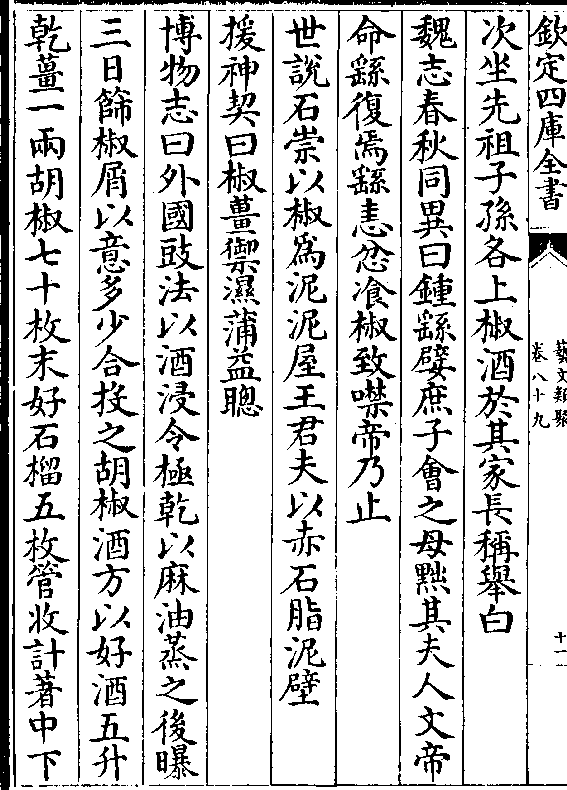 欽定四庫全書
藝文類聚
卷八十九
十一
次坐先祖子孫各上椒酒於其家長稱舉白
魏志春秋同異曰鍾繇嬖庶子會之母黜其夫人文帝
命繇復焉繇恚忿飡椒致噤帝乃止
世說石崇以椒為泥泥屋王君夫以赤石脂泥壁
援神契曰椒薑禦濕蒲益聰
博物志曰外國豉法以酒浸令極乾以麻油蒸之後曝
三日篩椒屑以意多少合投之胡椒酒方以好酒五升
乾薑一兩胡椒七十枚末好石榴五枚管收計著中下